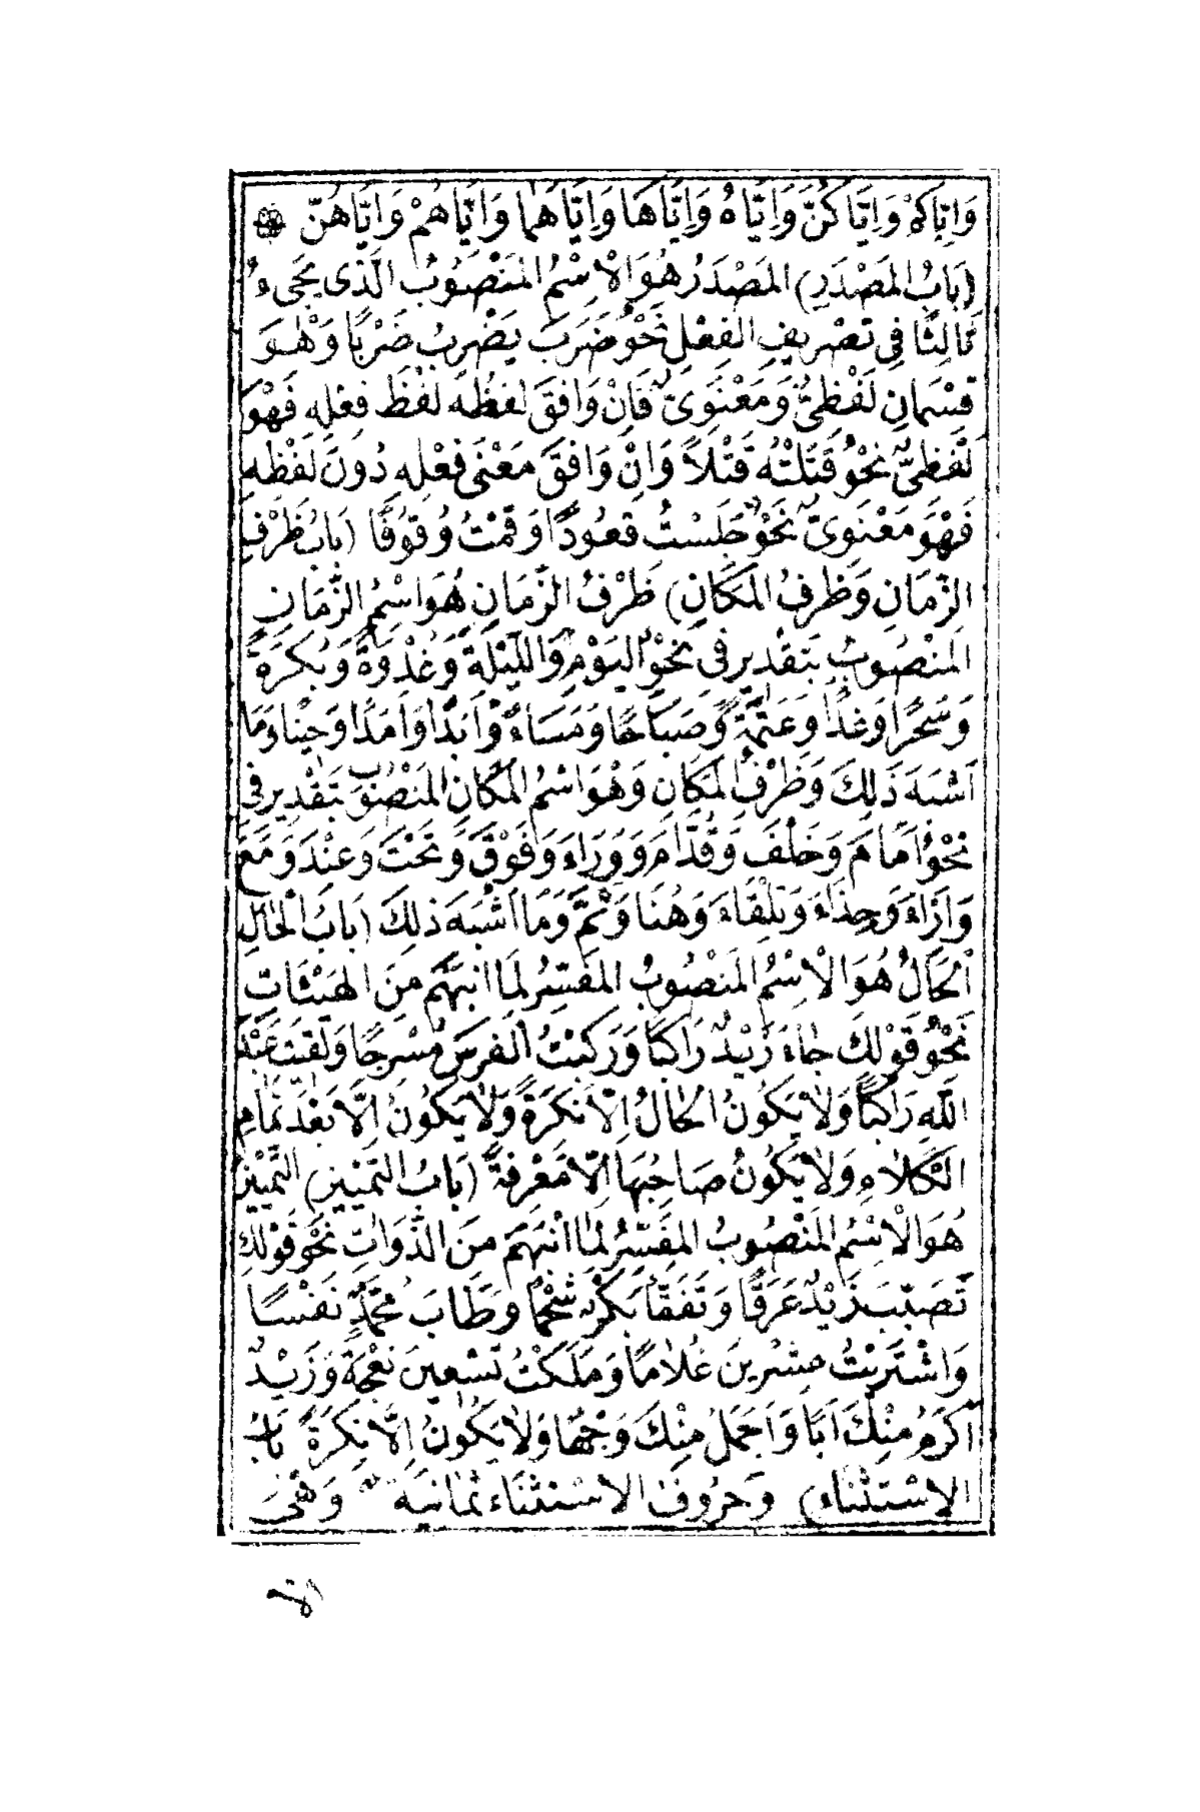 وَاِيَّاكُمْ وَاِيَّاكُنَّ وَاِيَّاهُ وَاِيَّاهَا وَاِيَّاهُمَا وَاِيَّاهُمْ وَاِيَّاهُنَّ
(بَابُ المَصْدَرِ) المَصْدَرُ هُوَ الْاِسْمُ المَنْصُوْبُ الَّذِى يَجِىءُ
ثَالِثًا فِى تَصْرِيفِ الفِعْلِ نَحْوُ ضَرَبَ يَضْرِبُ ضَرْبًا وَهْوَ
قِسْمَانِ لَفْظِىٌّ وَمَعْنَوِىٌّ فَاِنْ وَافَقَ لَفْظُهُ لَفْظَ فِعْلِهِ فَهْوَ
لَفْظِىٌّ نَحْوُ قَتَلْتُهُ قَتْلاً وَاِنْ وَافَقَ مَعْنَى فِعْلِهِ دُونَ لَفْظِهِ
فَهْوَ مَعْنَوِىٌّ نَحْوُ جَلَسْتُ قُعُودًا وَقُمْتُ وُقُوْفًا (بَابُ ظَرْفِ
الزَّمَانِ وَظَرْفُ المَكَانِ) ظَرْفُ الزَّمَانِ هُوَ اسْمُ الزَّمَانِ
المَنْصُوبُ بِتَقْدِيرِ فِى نَحْوُ اليَوْمِ وَاللَّيْلَةَ وَغُدْوَةً وَبُكْرَةً
وَسَحَرًا وَغَدًا وَعَتَمَةً وَصَبَاحًا وَمَسَاءً وَاَبَدًا وَاَمَدًا وَحِيْنًا وَمَا
اَشْبَهَ ذَلِكَ وَظَرْفُ المَكَانِ وَهْوَ اسْمُ المَكَانِ المَنْصُوبُ بِتَقْدِيرِ فِى
نَحْوُ اَمَامَ وَخَلْفَ وَقُدَّامَ وَوَرَاءَ وَفَوْقَ وَتَحْتَ وَعِنْدَ وَمَعَ
وَاِزَاءَ وَحِذَاءَ وَتِلْقَاءَ وَهُنَا وَثَمَّ وَمَا اَشْبَهَ ذٰلِكَ (بَابُ الْحَالِ
اَلحَالُ هُوَ الْاِسْمُ المَنْصُوبُ المُفَسِّرُ لِمَا انْبَهَمَ مِنَ الهَيْئَاتِ
نَحْوُ قَوْلِكَ جَاءَ زَيْدٌ رَاكِبًا وَرَكِبْتُ الفَرَسَ مُسْرَجًا وَلَقِيْتُ عَبْدَ
اللّٰهِ رَاكِبًا وَلَا يَكُوْنُ الحَالُ اِلَّا نَكِرَةً وَلَا يَكُونُ اِلَّا بَعْدَ تَمَامِ
الكَلَامِ وَلَا يَكُوْنُ صَاحِبُهَا اِلَّا مَعْرِفَةً (بَابُ التَّمْيِيزِ) التَّمْيِيْزُ
هُوَ الْاِسْمُ المَنْصُوبُ المُفَسِّرُ لِمَا انْبَهَمَ مِنَ الذَّوَاتِ نَحْوُ قَوْلِكَ
تَصَبَّبَ زَيْدٌ عَرَقًا وَتَفَقَّأَ بَكْرٌ شَحْمًا وَطَابَ مُحَمَّدٌ نَفْسًا
وَاشْتَرَيْتُ عِشْرِينَ غُلَامًا وَمَلَكْتُ تِسْعِيْنَ نَعْجَةً وَزَيْدٌ
اَكْرَمُ مِنْكَ اَبًا وَاَجْمَلُ مِنْكَ وَجْهًا وَلَا يَكُوْنُ اِلَّا نَكِرَةً بَابُ
الاِسْتِثْنَاءِ) وَحُرُوفُ الْاِسْتِثْنَاءِ ثَمَانِيَةٌ وَهْىَ
الا